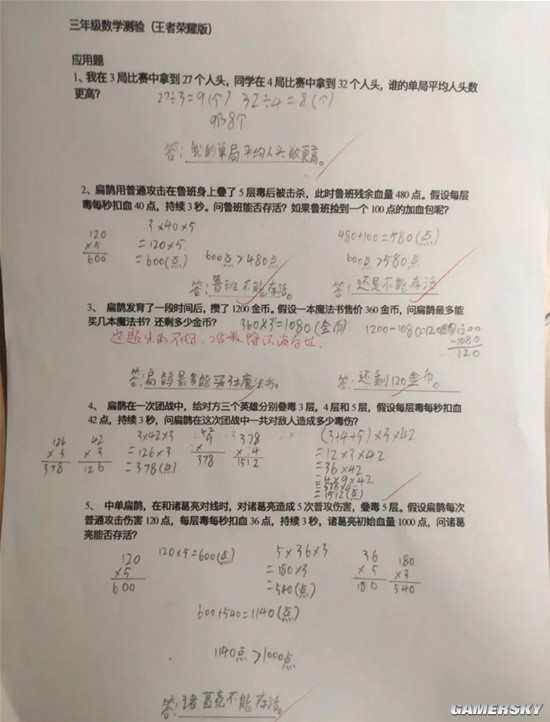 三年级数学测验（王者荣耀版）
应用题
1、我在 3 局比赛中拿到 27 个人头，同学在 4 局比赛中拿到 32 个人头，谁的单局平均人头数
更高？
27÷3=9(个) 32÷4=8(个)
9个>8个
答：我的单局平均人头数更高。
2、扁鹊用普通攻击在鲁班身上叠了 5 层毒后被击杀，此时鲁班残余血量 480 点。假设每层
毒每秒扣血 40 点，持续 3 秒。问鲁班能否存活？如果鲁班捡到一个 100 点的加血包呢？
3×40×5 480+100=580(点)
120 =120×5
×5 =600(点) 600点>480点 600点>580点
600
答：鲁班不能存活。 答：还是不能存活。
3、扁鹊发育了一段时间后，攒了 1200 金币。假设一本魔法书售价 360 金币，问扁鹊最多能
买几本魔法书？还剩多少金币？
360×3=1080(金币) 1200-1080=120 1200
-1080
120
这题出的不好，
答：扁鹊最多能买3本魔法书。 答：还剩120金币。
4、扁鹊在一次团战中，给对方三个英雄分别叠毒 3 层，4 层和 5 层，假设每层毒每秒扣血
42 点，持续 3 秒，问扁鹊在这次团战中一共对敌人造成多少毒伤？
126 42 3×42×3 42 378 (3+4+5)×3×42
×3 ×3 =126×3 ×4 =12×3×42
378 126 =378(点) 378 1512 =36×42
=4×9×42
=1512(点)
5、中单扁鹊，在和诸葛亮对线时，对诸葛亮造成 5 次普攻伤害，叠毒 5 层。假设扁鹊每次
普通攻击伤害 120 点，每层毒每秒扣血 36 点，持续 3 秒，诸葛亮初始血量 1000 点，问诸葛
亮能否存活？
120 120×5=600(点) 5×36×3 36 180
×5 =180×3 ×5 ×3
600 =540(点) 180 540
600+540=1140(点)
1140点>1000点
答：诸葛亮不能存活。
GAMERSKY